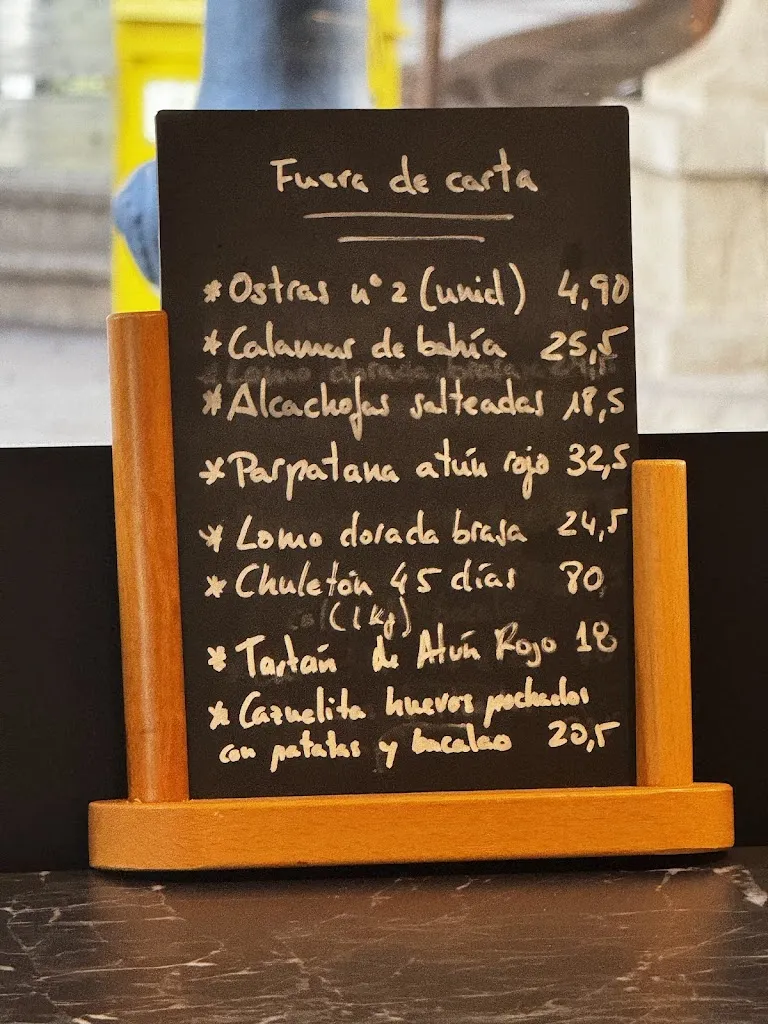 Fuera de carta
* Ostras nº 2 (unid) 4,90
* Calamar de bahía 25,5
* Alcachofas salteadas 18,5
* Parpatana atún rojo 32,5
* Lomo dorada brasa 24,5
* Chuletón 45 días 80
(1 kg)
* Tartán de Atún Rojo 18
* Cazuelita huevos pochados
con patatas y bacalao 20,5